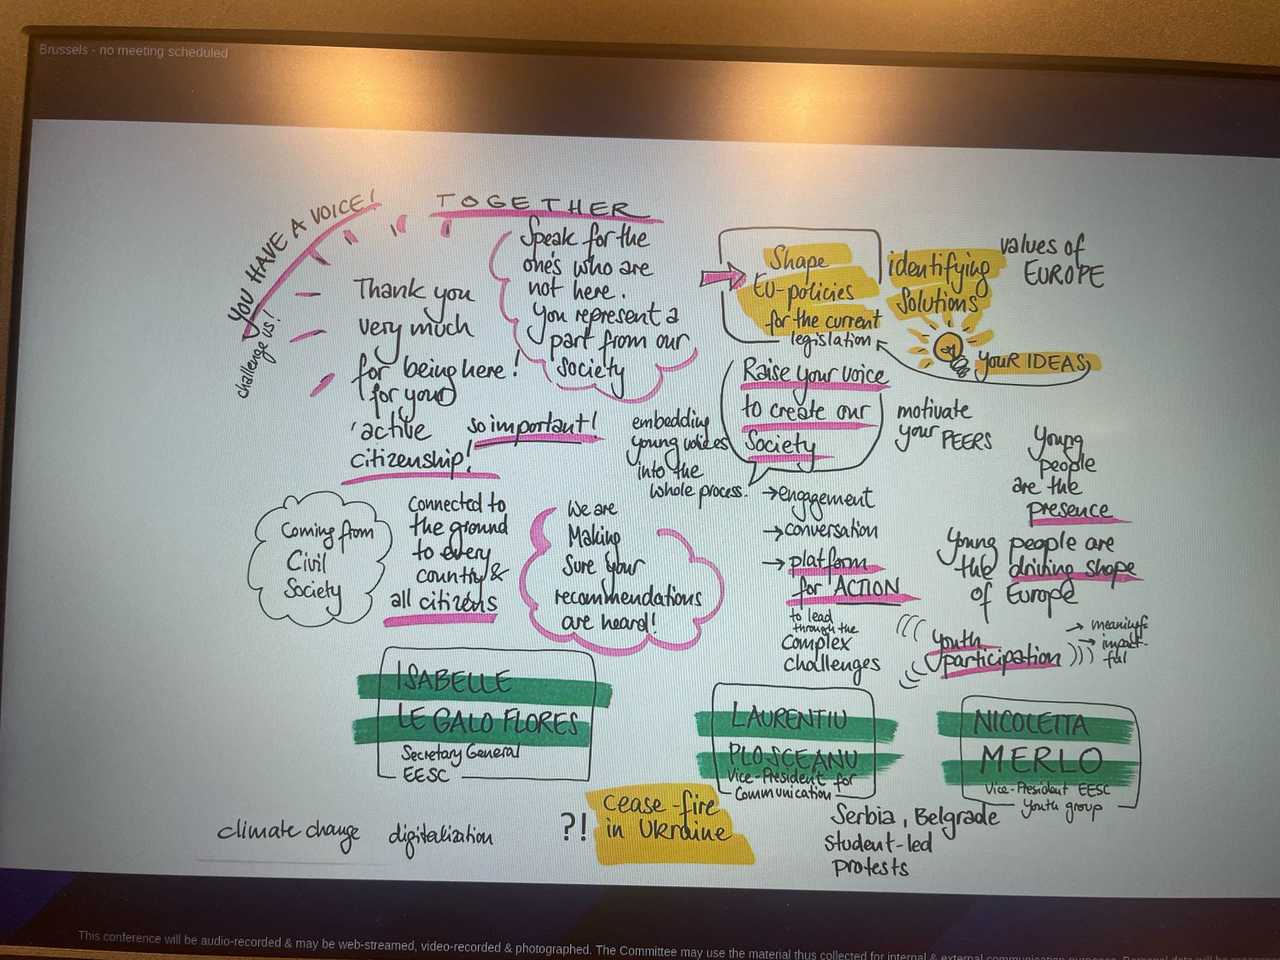 Brussels - no meeting scheduled
YOU HAVE A VOICE!
challenge us!
TOGETHER
Thank you
very much
for being here!
for your
active
citizenship!
so important!
Speak for the
one's who are
not here.
You represent a
part from our
society
Shape
EU-policies
for the current
legislation
identifying
solutions
values of
EUROPE
YOUR IDEAS
Raise your voice
to create our
Society
embedding
young voices
into the
whole process.
motivate
your PEERS
Young
people
are the
presence
Coming from
Civil
Society
Connected to
the ground
to every
country &
all citizens
We are
Making
Sure your
recommendations
are heard!
→ engagement
→ conversation
→ platform
for ACTION
to lead
through the
complex
challenges
Young people are
the driving shape
of Europe
Youth
participation
→ meaningful
→ impact-
ful
ISABELLE
LE GALO FLORES
Secretary General
EESC
LAURENTIU
PLOSCEANU
Vice-President for
Communication
NICOLETTA
MERLO
Vice-President EESC
Youth group
climate change
digitalization
?!
cease-fire
in Ukraine
Serbia, Belgrade
student-led
protests
This conference will be audio-recorded & may be web-streamed, video-recorded & photographed. The Committee may use the material thus collected for internal & external communication purposes.